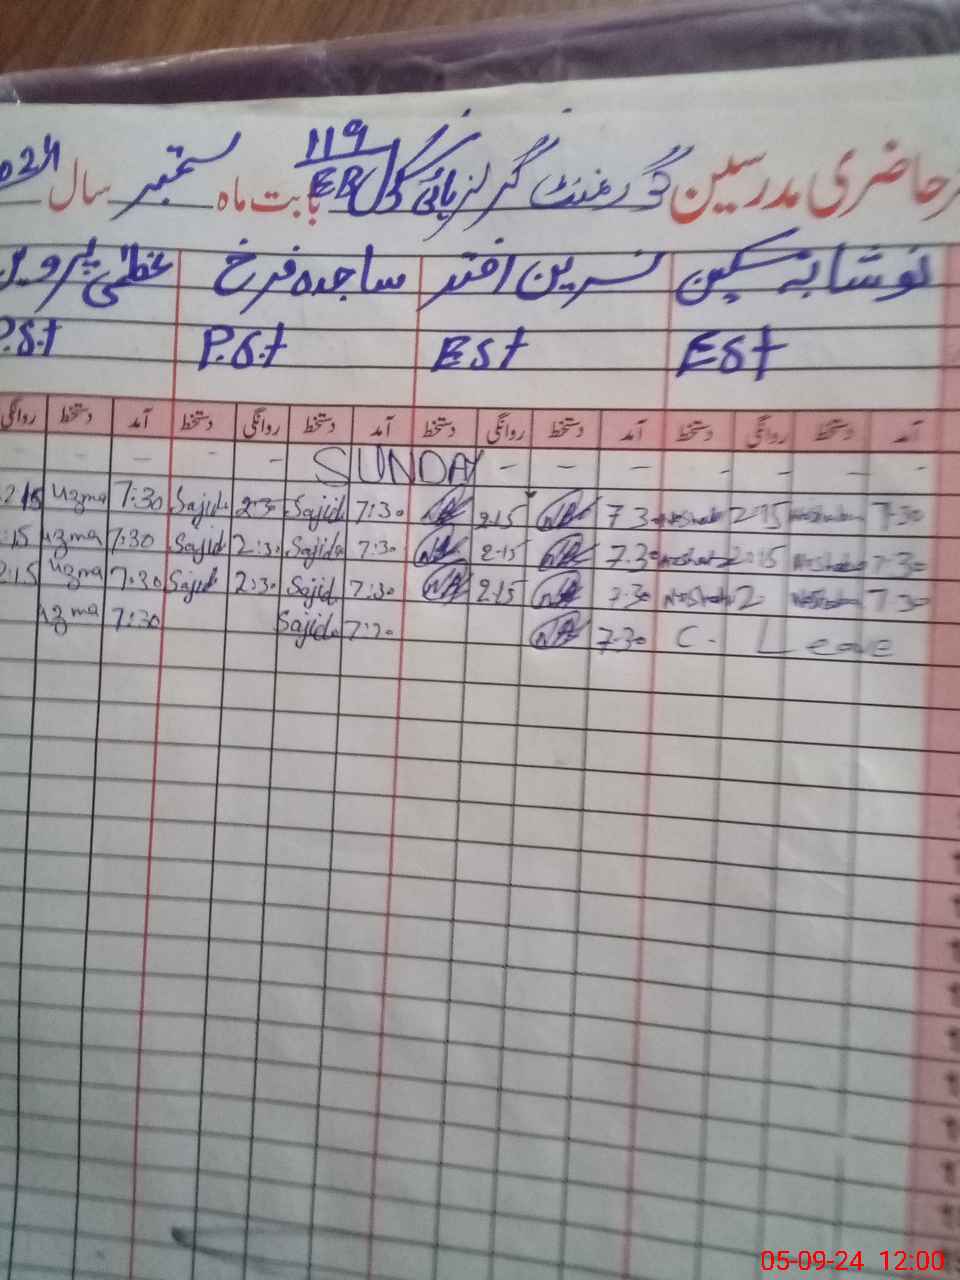 حاضری مدرسین گورنمنٹ گرلز ہائی سکول 119/EB بابت ماہ ستمبر سال 2024
نوشابہ سکین نسرین اختر ساجدہ فرخ عظمیٰ پروین
EST EST P.S.T P.S.T
آمد دستخط روانگی دستخط آمد دستخط روانگی دستخط آمد دستخط روانگی دستخط آمد دستخط روانگی
- - - - - - - SUNDAY - - - - -
2:15 Uzma 7:30 Sajida 2:30 Sajida 7:30 2:15 7:30 Noshaba 2:15 Noshaba 7:30
:15 Uzma 7:30 Sajida 2:30 Sajida 7:30 2:15 7:30 Noshaba 2:15 Noshaba 7:30
2:15 Uzma 7:30 Sajida 2:30 Sajida 7:30 2:15 7:30 Noshaba 2 Noshaba 7:30
Uzma 7:30 Sajida 7:30 7:30 C. Leave
05-09-24 12:00